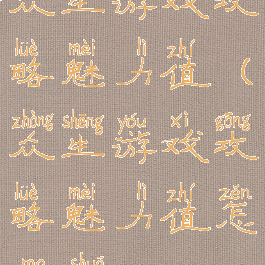 lüè mèi lì zhí
略魅力值（
zhòng shēng yóu xì gōng
众生游戏攻
lüè mèi lì zhí zěn
略魅力值怎